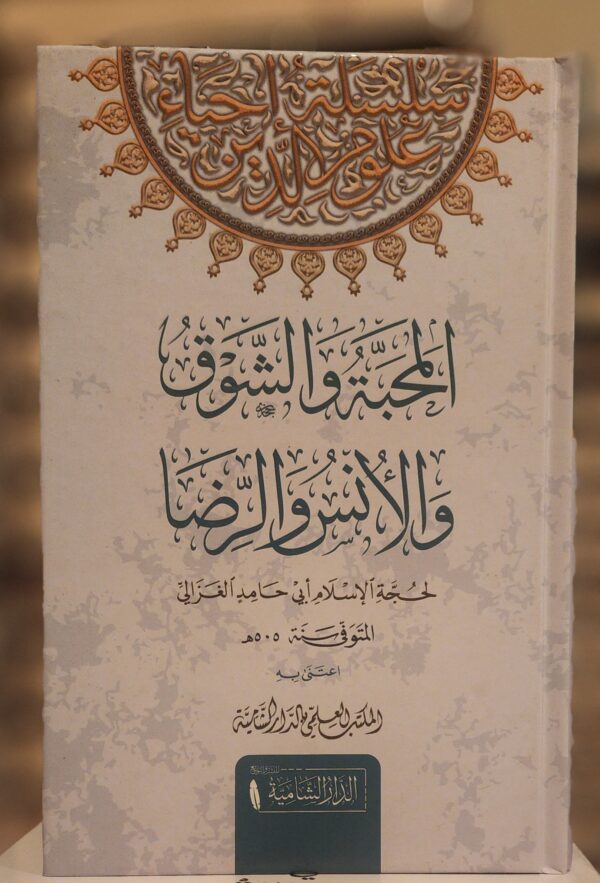 سلسلة إحياء
علوم الدين
المحبة والشوق
والأنس والرضا
لحجة الإسلام أبي حامد الغزالي
المتوفى سنة ٥٠٥هـ
اعتنى به
المكتب العلمي بالدار الشامية
الدار الشامية